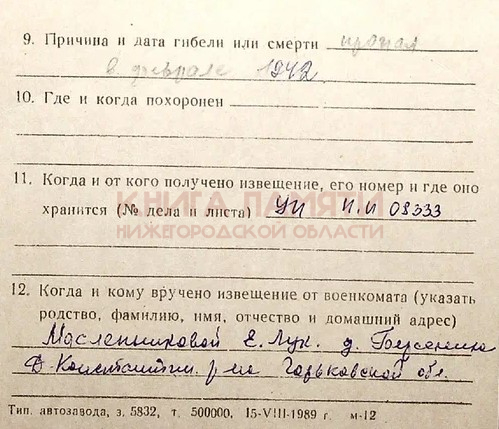 9. Причина и дата гибели или смерти пропал
в феврале 1942
10. Где и когда похоронен
11. Когда и от кого получено извещение, его номер и где оно
хранится (№ дела и листа) УП И.И 08333
КНИГА ПАМЯТИ
НИЖЕГОРОДСКОЙ ОБЛАСТИ
12. Когда и кому вручено извещение от военкомата (указать
родство, фамилию, имя, отчество и домашний адрес)
Масленниковой Е. Лук. д.
Д. Константин. р-на Горьковской обл.
Тип. автозавода, з. 5832, т. 500000, 15-VIII-1989 г. м-12